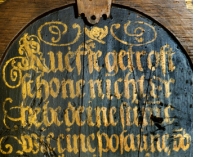 Rueffe getrost
schone nicht er
hebe deine stim
wie eine posaune